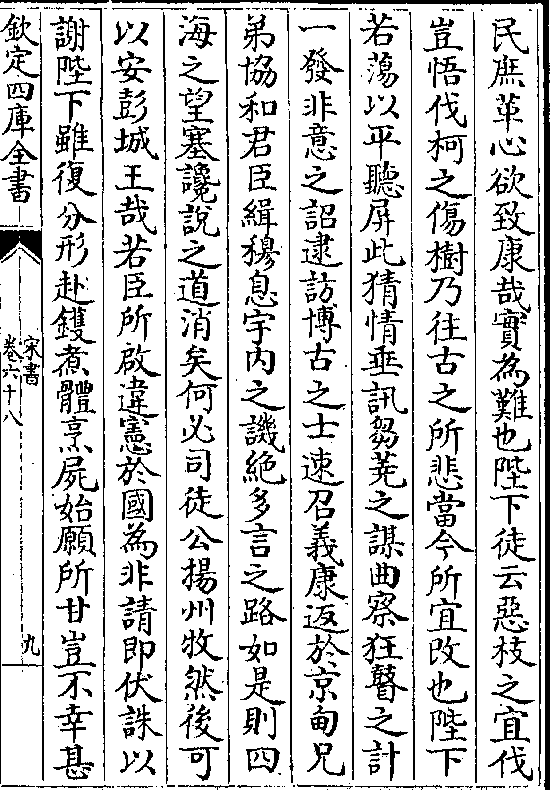 民庶革心欲致康哉實為難也陛下徒云惡枝之宜伐
豈悟伐柯之傷樹乃往古之所悲當今所宜改也陛下
若蕩以平聽屏此猜情垂訊芻蕘之謀曲察狂瞽之計
一發非意之詔逮訪博古之士速召義康返於京甸兄
弟協和君臣緝穆息宇内之譏絶多言之路如是則四
海之望塞讒說之道消矣何必司徒公揚州牧然後可
以安彭城王哉若臣所啟違憲於國為非請即伏誅以
謝陛下雖復分形赴鑊煮體烹屍始願所甘豈不幸甚
欽定四庫全書
宋書
卷六十八
九